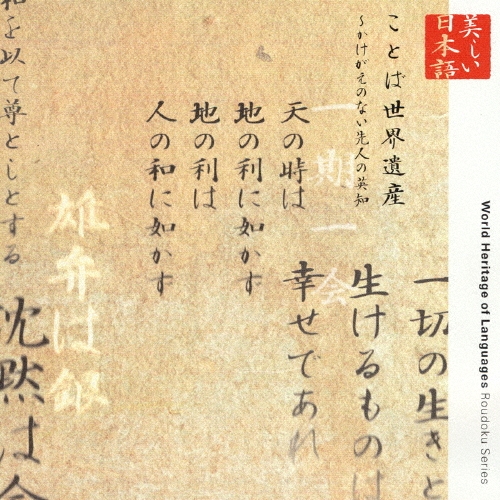 美しい
日本語
World Heritage of Languages Roudoku Series
ことば世界遺産
～かけがえのない先人の英知
天の時は
地の利に如かず
地の利は
人の和に如かず
一期一会
一切の生きと
生けるものは
幸せであれ
和を以て尊としとする
雄弁は銀
沈黙は金